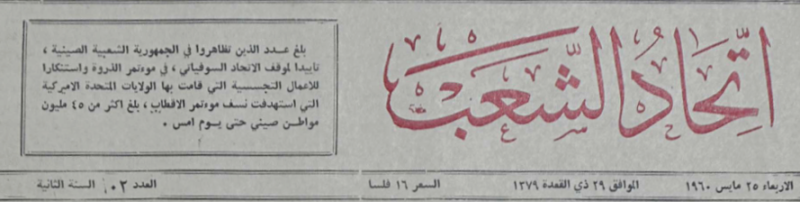 اتحاد الشعب
بلغ عدد الذين تظاهروا في الجمهورية الشعبية الصينية ،
تاييدا لموقف الاتحاد السوفياتي ، في موءتمر الذروة واستنكارا
للاعمال التجسسية التي قامت بها الولايات المتحدة الاميركية
التي استهدفت نسف موءتمر الاقطاب ، بلغ اكثر من ٤٥ مليون
مواطن صيني حتى يوم امس .
الاربعاء ٢٥ مايس ١٩٦٠ الموافق ٢٩ ذي القعدة ١٣٧٩ السعر ١٦ فلسا العدد ١٠٢ السنة الثانية